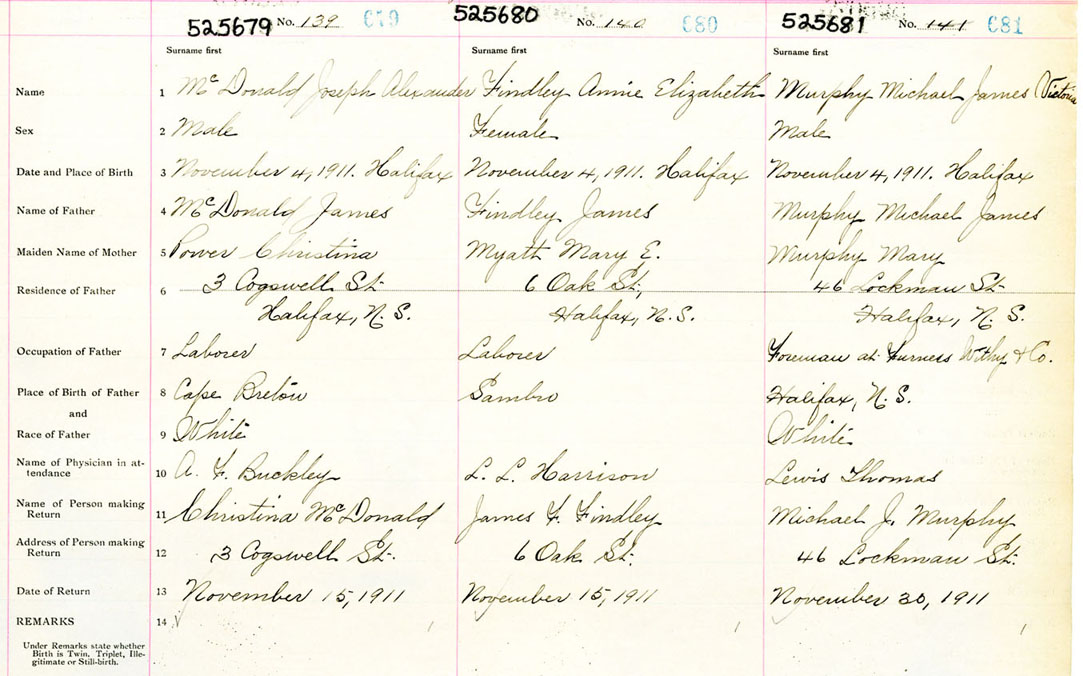 525679 No. 139 679 525680 No. 140 680 525681 No. 141 681
Surname first Surname first Surname first
Name 1 McDonald Joseph Alexander Findley Annie Elizabeth Murphy Michael James Victoria
Sex 2 Male Female Male
Date and Place of Birth 3 November 4, 1911. Halifax November 4, 1911. Halifax November 4, 1911. Halifax
Name of Father 4 McDonald James Findley James Murphy Michael James
Maiden Name of Mother 5 Power Christina Myatt Mary E. Murphy Mary
Residence of Father 6 3 Cogswell St. 6 Oak St., 46 Lockman St.
Halifax, N.S. Halifax, N.S. Halifax, N.S.
Occupation of Father 7 Laborer Laborer Foreman at Furness Withy & Co.
Place of Birth of Father 8 Cape Breton Sambro Halifax, N.S.
and
Race of Father 9 White White
Name of Physician in at-
tendance 10 A. F. Buckley L. L. Harrison Lewis Thomas
Name of Person making
Return 11 Christina McDonald James F. Findley Michael J. Murphy
Address of Person making
Return 12 3 Cogswell St. 6 Oak St. 46 Lockman St.
Date of Return 13 November 15, 1911 November 15, 1911 November 30, 1911
REMARKS 14
Under Remarks state whether
Birth is Twin, Triplet, Ille-
gitimate or Still-birth.